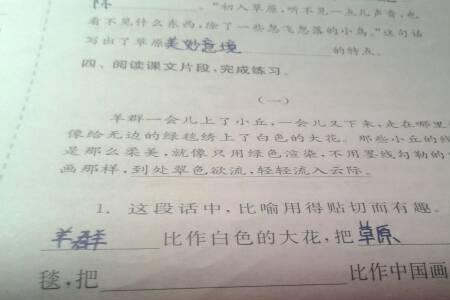 怀 。"初入草原,听不见一点儿声音,也
看不见什么东西,除了一些忽飞忽落的小鸟。"这句话
写出了草原美妙意境的特点。
四、阅读课文片段,完成练习。
(一)
羊群一会儿上了小丘,一会儿又下来,走在哪里
像给无边的绿毯绣上了白色的大花。那些小丘的线
是那么柔美,就像只用绿色渲染,不用墨线勾勒的
画那样,到处翠色欲流,轻轻流入云际。
1. 这段话中,比喻用得贴切而有趣。
羊群 比作白色的大花,把 草原
毯,把 比作中国画